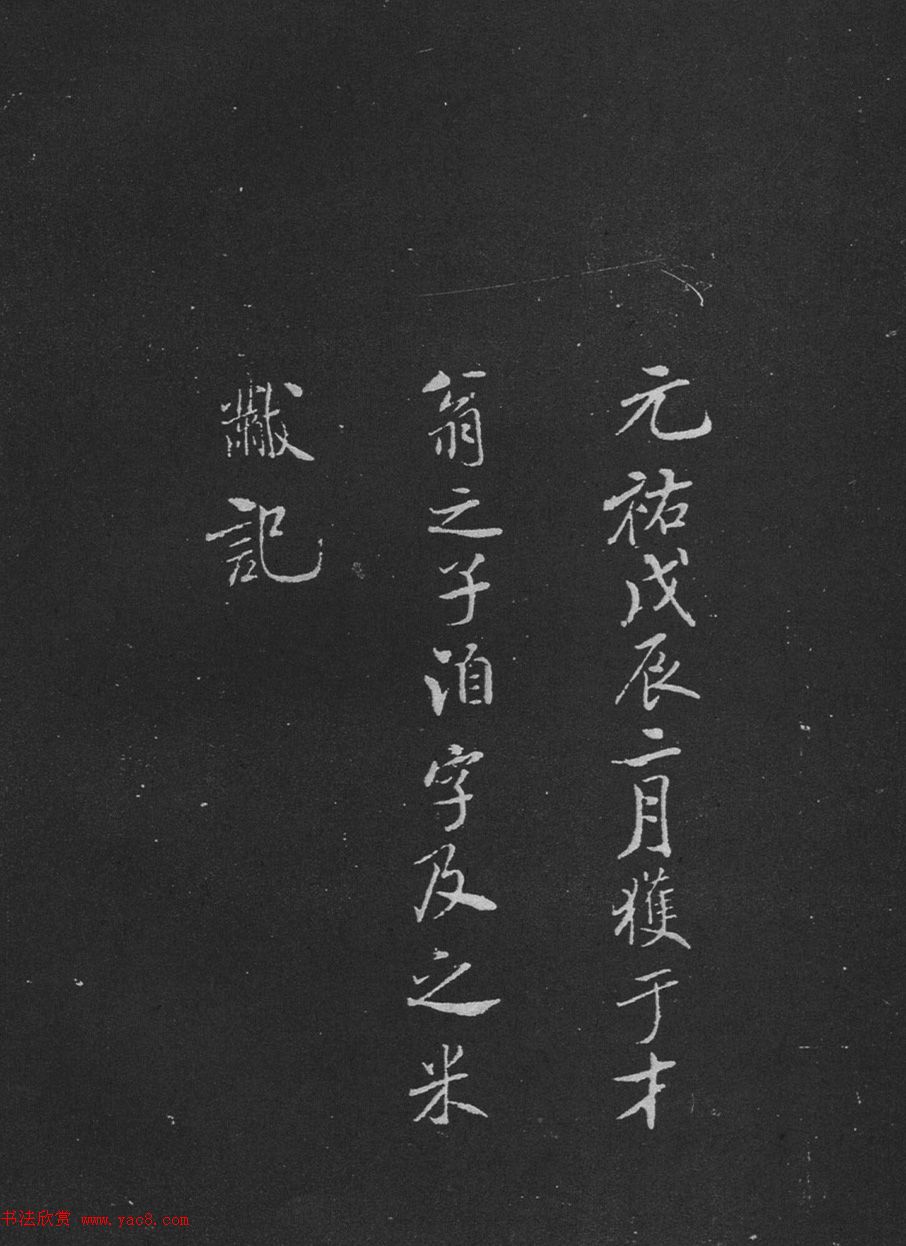 元祐戊辰二月獲于才
翁之子洎字及之米
黻記
书法欣赏 www.yac8.com